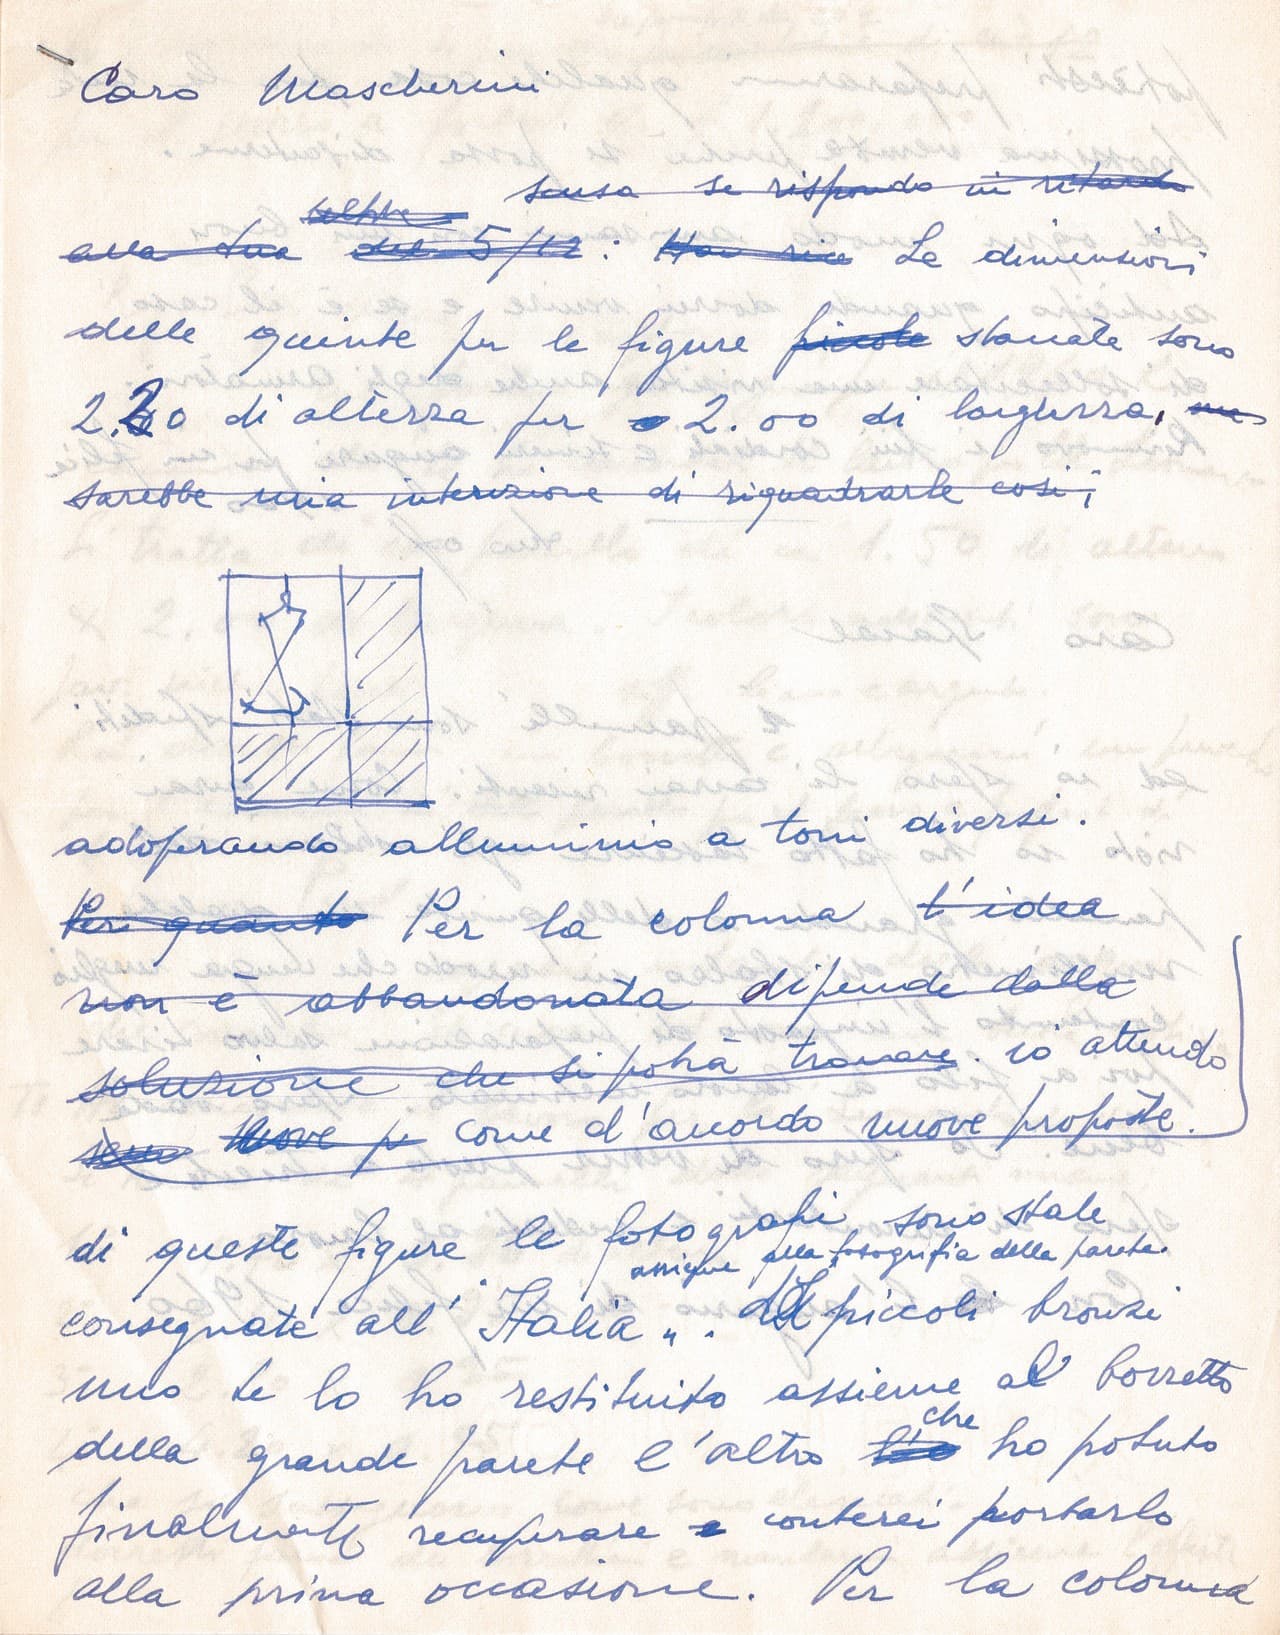 Caro Mascherini
scusa se rispondo in ritardo
alla tua del 5/12: Le dimensioni
delle quinte per le figure piccole staccate sono
2.20 di altezza per 2.00 di larghezza,
sarebbe mia intenzione di riquadrarle così;
adoperando alluminio a toni diversi.
Per quanto Per la colonna l'idea
non è abbandonata dipende dalla
soluzione che si potrà trovare. io attendo
nuove p come d'accordo nuove proposte.
di queste figure le fotografi sono state
assieme alla fotografia della parete.
consegnate all' "Italia". piccoli bronzi
uno te lo ho restituito assieme al bozzetto
della grande parete l'altro che ho potuto
finalmente recuperare conterei portarlo
alla prima occasione. Per la colonna